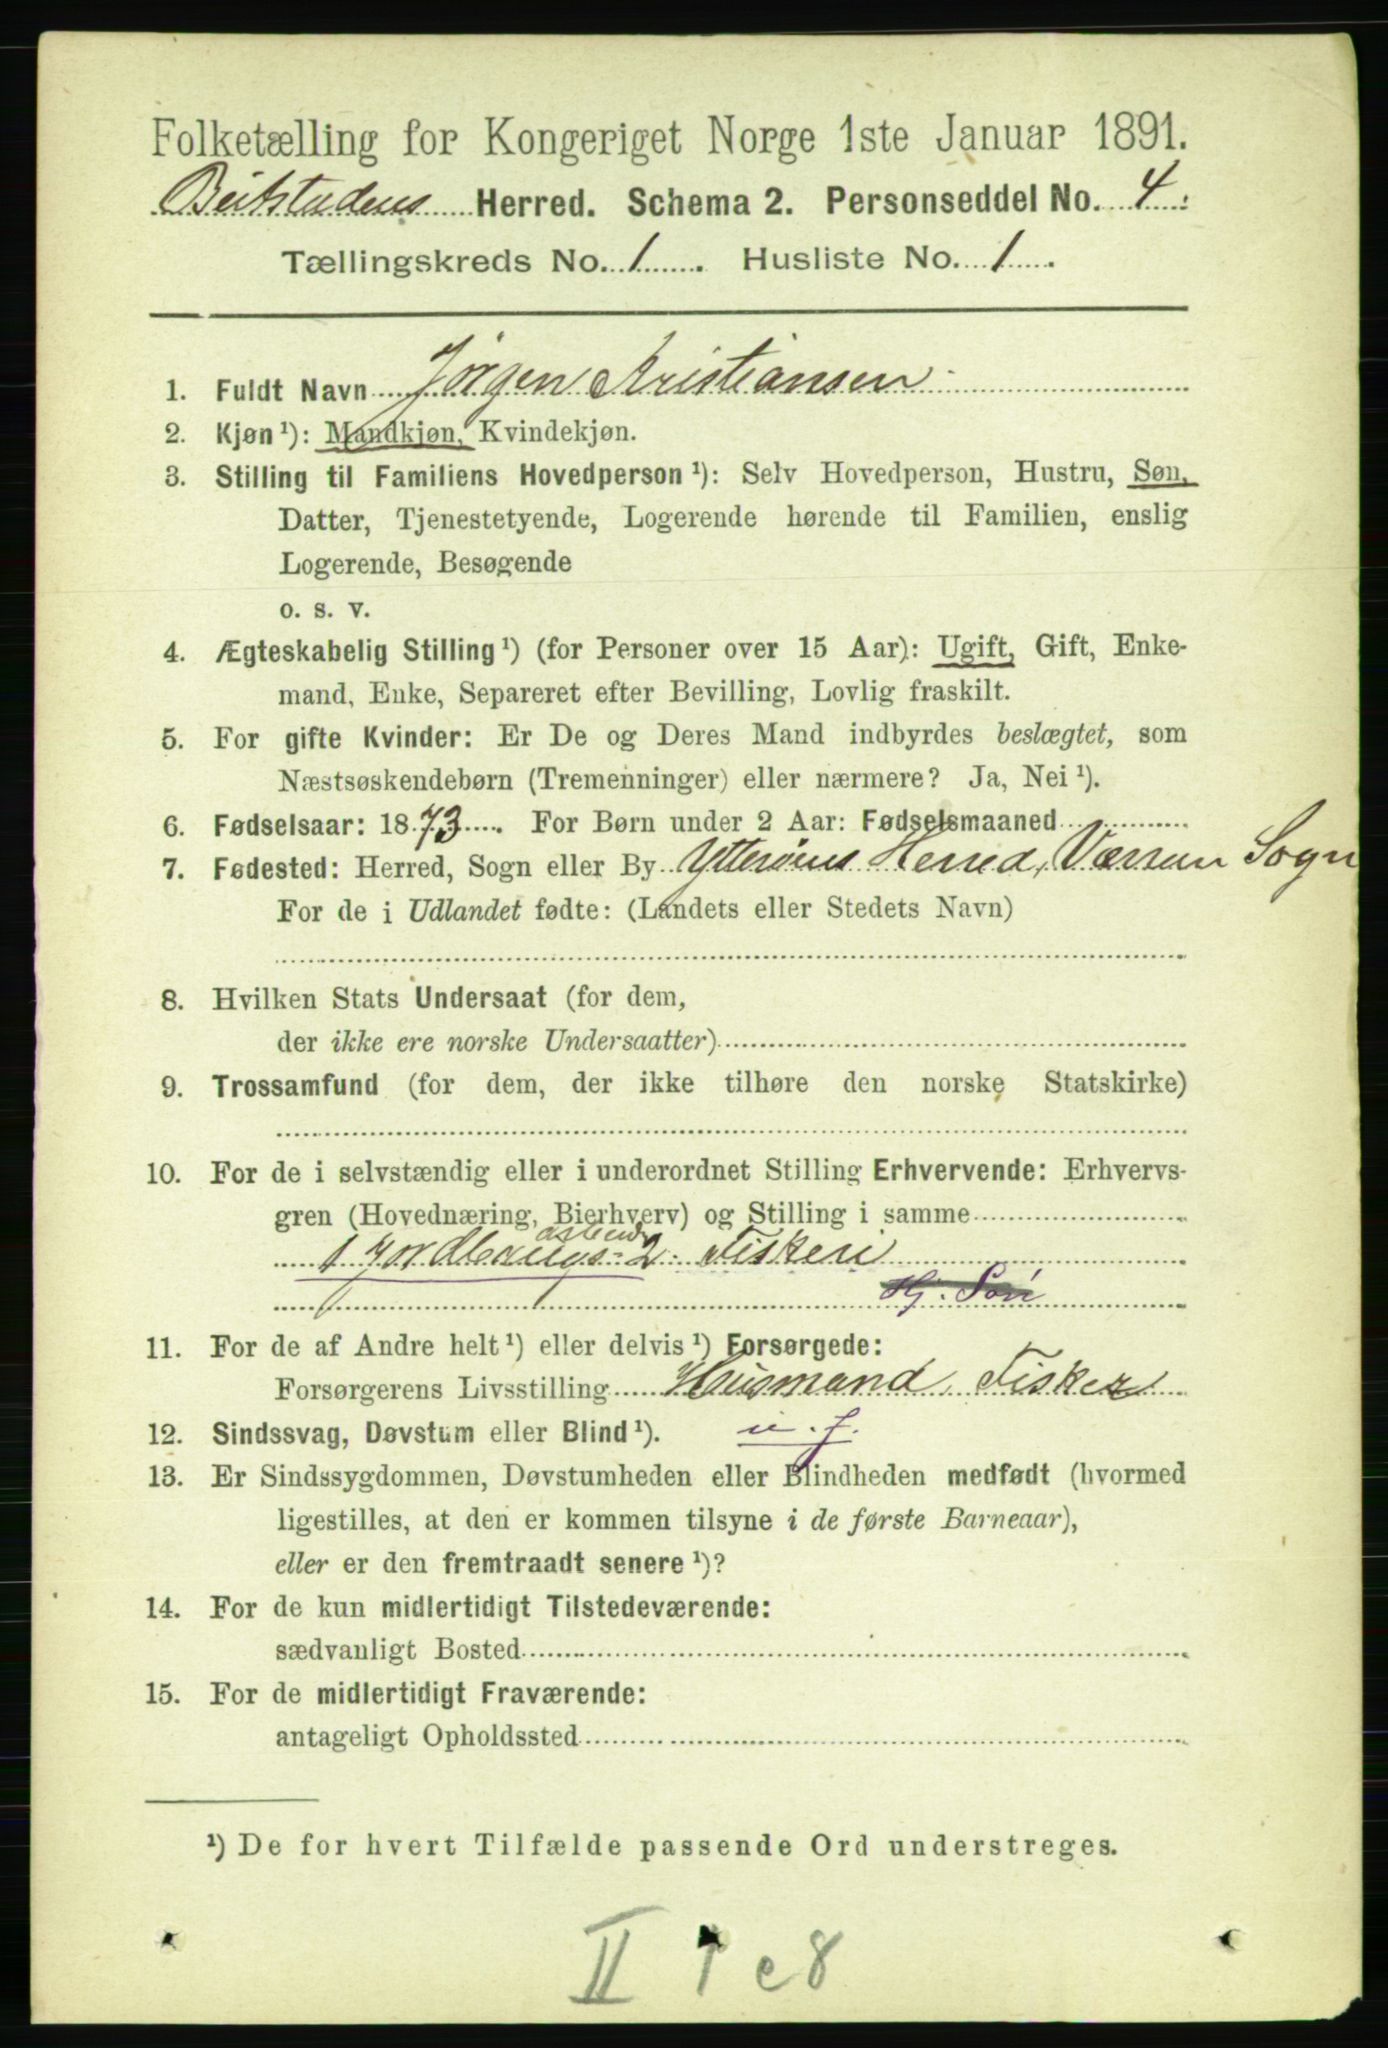 Folketælling for Kongeriget Norge 1ste Januar 1891.
Beitstadens Herred. Schema 2. Personseddel No. 4.
Tællingskreds No. 1. Husliste No. 1.
1. Fuldt Navn Jørgen Kristiansen
2. Kjøn ¹): Mandkjøn, Kvindekjøn.
3. Stilling til Familiens Hovedperson ¹): Selv Hovedperson, Hustru, Søn,
Datter, Tjenestetyende, Logerende hørende til Familien, enslig
Logerende, Besøgende
o. s. v.
4. Ægteskabelig Stilling ¹) (for Personer over 15 Aar): Ugift, Gift, Enke-
mand, Enke, Separeret efter Bevilling, Lovlig fraskilt.
5. For gifte Kvinder: Er De og Deres Mand indbyrdes beslægtet, som
Næstsøskendebørn (Tremenninger) eller nærmere? Ja, Nei ¹).
6. Fødselsaar: 1873. For Børn under 2 Aar: Fødselsmaaned
7. Fødested: Herred, Sogn eller By Ytterøens Herred, Værran Sogn
For de i Udlandet fødte: (Landets eller Stedets Navn)
8. Hvilken Stats Undersaat (for dem,
der ikke ere norske Undersaatter)
9. Trossamfund (for dem, der ikke tilhøre den norske Statskirke)
10. For de i selvstændig eller i underordnet Stilling Erhvervende: Erhvervs-
gren (Hovednæring, Bierhverv) og Stilling i samme
arbeid
1 Jordbrugs- 2. Fiskeri
Hj. Søn
11. For de af Andre helt ¹) eller delvis ¹) Forsørgede:
Forsørgerens Livsstilling Husmand, Fisker
12. Sindssvag, Døvstum eller Blind ¹). u. f.
13. Er Sindssygdommen, Døvstumheden eller Blindheden medfødt (hvormed
ligestilles, at den er kommen tilsyne i de første Barneaar),
eller er den fremtraadt senere ¹)?
14. For de kun midlertidigt Tilstedeværende:
sædvanligt Bosted
15. For de midlertidigt Fraværende:
antageligt Opholdssted
¹) De for hvert Tilfælde passende Ord understreges.
II 1 e8